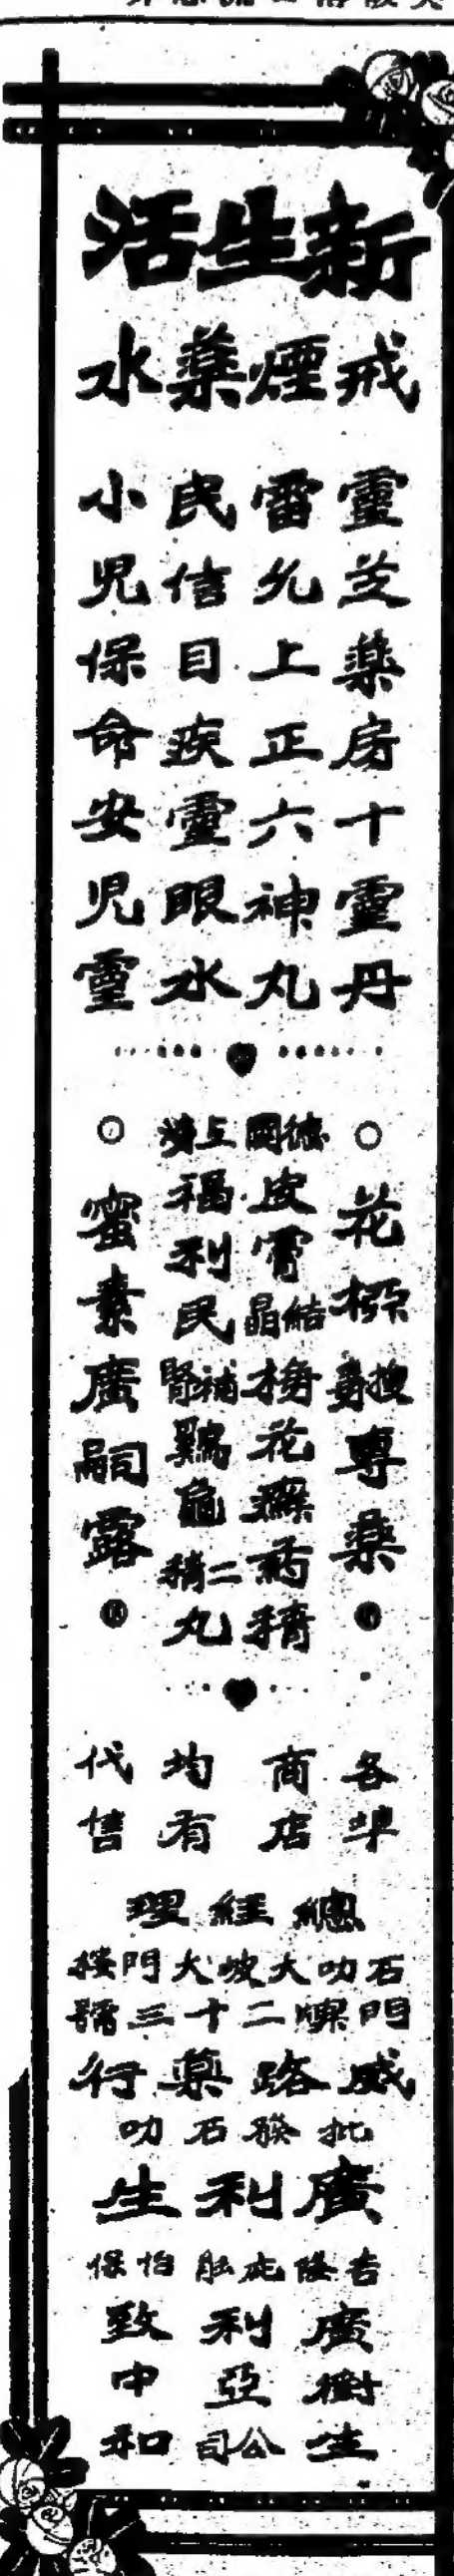 新生活
戒煙藥水
靈芝藥房十靈丹
雷允上正六神丸
民信目疾靈眼水
小兒保命安兒靈
花柳搜毒專藥
德國皮膏結晶梅花
上海福利民補腎鷄龜二精丸
蜜素廣嗣露
各埠
商店
均有
代售
總經理
石叻大坡大門樓
門牌二十三號
威路藥行
批發石叻
廣利生
吉隆庇朥怡保
廣樹生
利亞公司
致中和